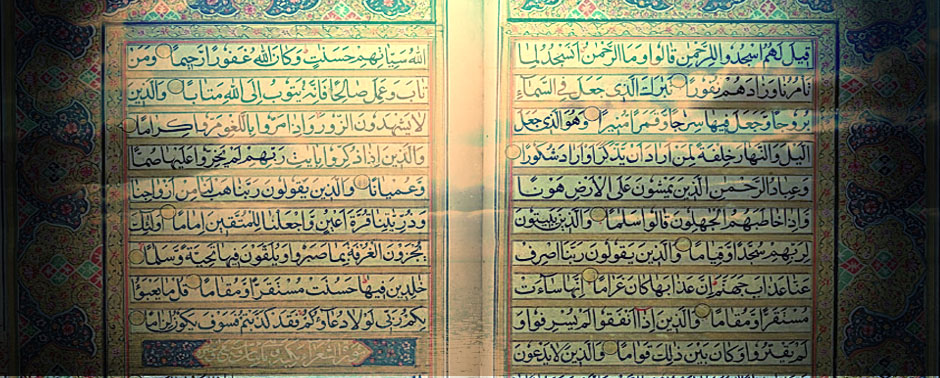 قِيلَ لَهُمُ اسْجُدُوا لِلرَّحْمٰنِ قَالُوا وَمَا الرَّحْمٰنُ أَنَسْجُدُ لِمَا
تَأْمُرُنَا وَزَادَهُمْ نُفُورًا تَبَارَكَ الَّذِي جَعَلَ فِي السَّمَاءِ
بُرُوجًا وَجَعَلَ فِيهَا سِرَاجًا وَقَمَرًا مُنِيرًا وَهُوَ الَّذِي جَعَلَ
اللَّيْلَ وَالنَّهَارَ خِلْفَةً لِمَنْ أَرَادَ أَنْ يَذَّكَّرَ أَوْ أَرَادَ شُكُورًا
وَعِبَادُ الرَّحْمٰنِ الَّذِينَ يَمْشُونَ عَلَى الْأَرْضِ هَوْنًا
وَإِذَا خَاطَبَهُمُ الْجٰهِلُونَ قَالُوا سَلٰمًا وَالَّذِينَ يَبِيتُونَ
لِرَبِّهِمْ سُجَّدًا وَقِيَامًا وَالَّذِينَ يَقُولُونَ رَبَّنَا اصْرِفْ
عَنَّا عَذَابَ جَهَنَّمَ إِنَّ عَذَابَهَا كَانَ غَرَامًا إِنَّهَا سَاءَتْ
مُسْتَقَرًّا وَمُقَامًا وَالَّذِينَ إِذَا أَنْفَقُوا لَمْ يُسْرِفُوا وَ
لَمْ يَقْتُرُوا وَكَانَ بَيْنَ ذٰلِكَ قَوَامًا وَالَّذِينَ لَا يَدْعُونَ
اللهُ سَيِّئَاتِهِمْ حَسَنٰتٍ وَكَانَ اللهُ غَفُورًا رَحِيمًا وَمَنْ
تَابَ وَعَمِلَ صَالِحًا فَإِنَّهُ يَتُوبُ إِلَى اللهِ مَتَابًا وَالَّذِينَ
لَا يَشْهَدُونَ الزُّورَ وَإِذَا مَرُّوا بِاللَّغْوِ مَرُّوا كِرَامًا
وَالَّذِينَ إِذَا ذُكِّرُوا بِاٰيٰتِ رَبِّهِمْ لَمْ يَخِرُّوا عَلَيْهَا صُمًّا
وَعُمْيَانًا وَالَّذِينَ يَقُولُونَ رَبَّنَا هَبْ لَنَا مِنْ أَزْوَاجِنَا
وَذُرِّيّٰتِنَا قُرَّةَ أَعْيُنٍ وَاجْعَلْنَا لِلْمُتَّقِينَ إِمَامًا أُولٰئِكَ
يُجْزَوْنَ الْغُرْفَةَ بِمَا صَبَرُوا وَيُلَقَّوْنَ فِيهَا تَحِيَّةً وَسَلٰمًا
خٰلِدِينَ فِيهَا حَسُنَتْ مُسْتَقَرًّا وَمُقَامًا قُلْ مَا يَعْبَؤُا
بِكُمْ رَبِّي لَوْلَا دُعَاؤُكُمْ فَقَدْ كَذَّبْتُمْ فَسَوْفَ يَكُونُ لِزَامًا